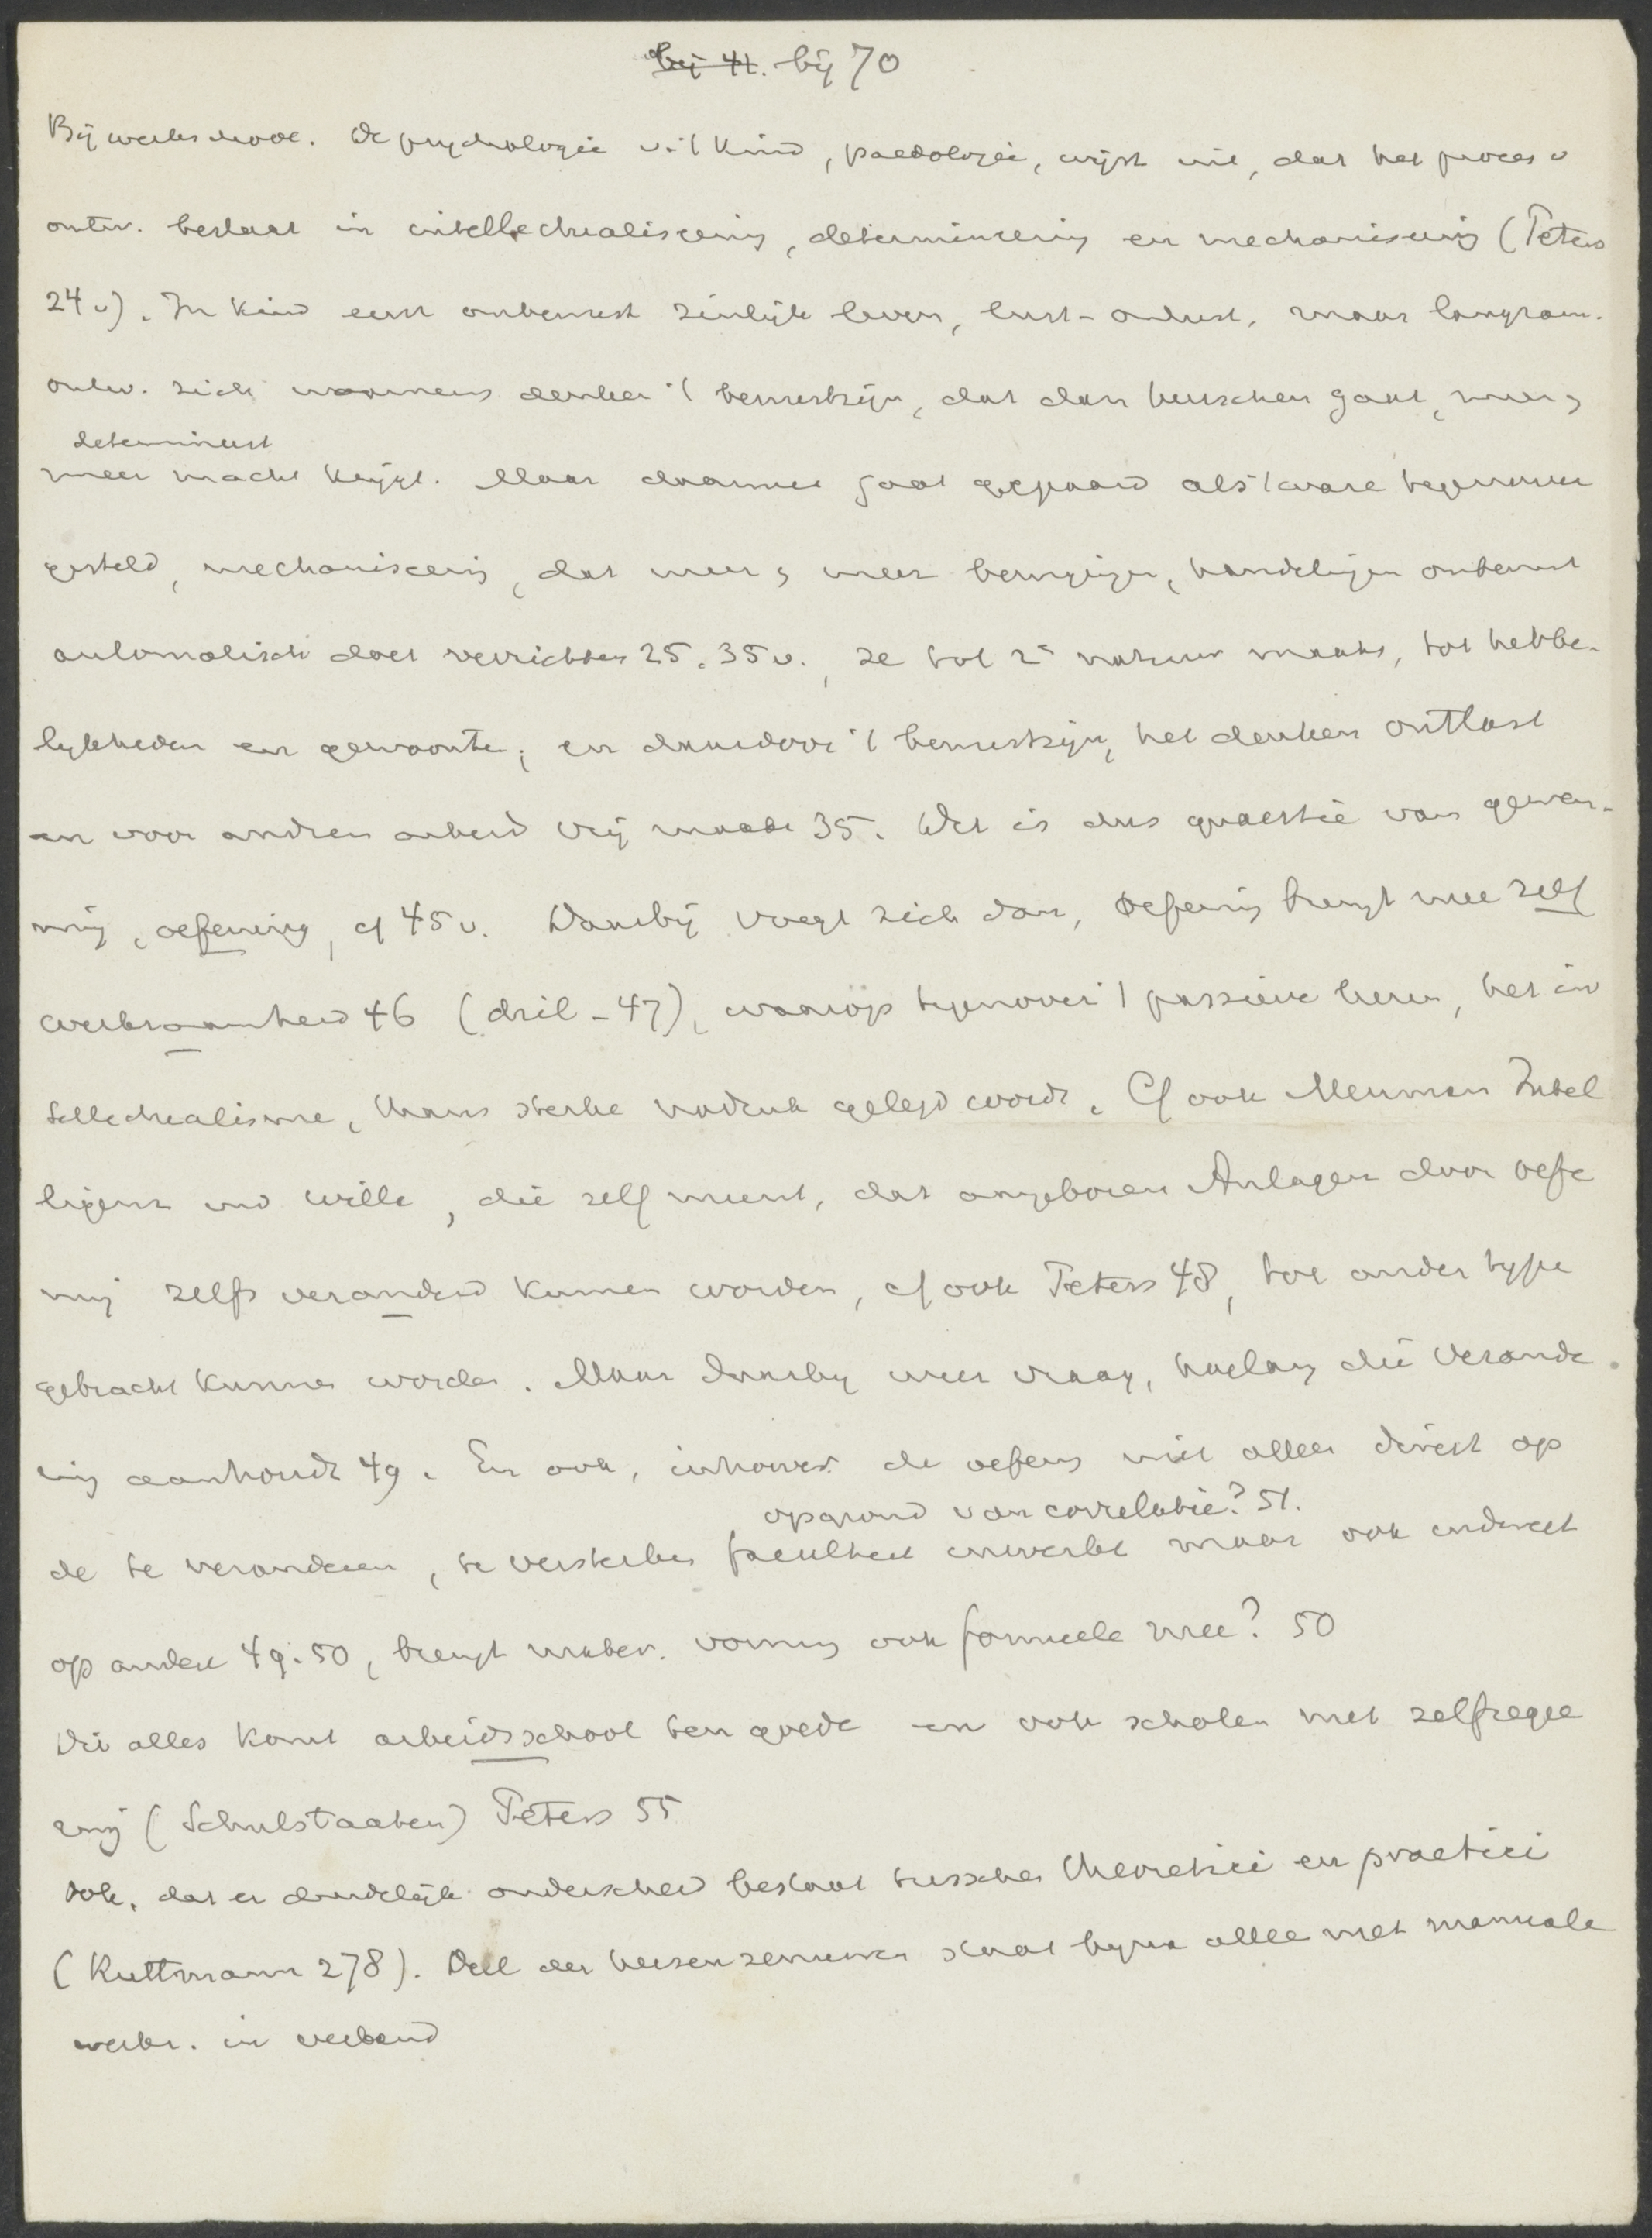 bij 41. bij 70
Bij werkschool. De psychologie v. 't kind, paedologie, wijst uit, dat het proces v
ontw. bestaat in intellectualiseering, determineering en mechaniseering (Peters
24 v). In kind eerst onbewust zinlijk leven, lust-onlust, maar langzam.
ontw. zich waarnem denken 't bewustzijn, dat dan heerschen gaat, meer en
determineert
meer macht krijgt. Maar daarmee gaat gepaard als 't ware tegenover
gesteld, mechaniseering, dat meer en meer bewegingen, handelingen onbewust
automatisch doet verrichten 25. 35 v., ze tot 2e natuur maakt, tot hebbe-
lijkheden en gewoonte; en daardoor 't bewustzijn, het denken ontlast
en voor andren arbeid vrij maakt 35. Het is dus quaestie van gewen-
ning, oefening, cf 45 v. Daarbij voegt zich dan, oefening brengt mee zelf
werkzaamheid 46 (dril - 47), waarop tegenover 't passieve leren, het in
tellectualisme, thans sterke nadruk gelegd wordt. Cf ook Meuman Intel
ligenz und Wille, die zelf meent, dat angeboren Anlagen door oefe
ning zelfs veranderd kunnen worden, cf ook Peters 48, tot ander type
gebracht kunnen worden. Maar daarbij weer vraag, hoelang die verande
ring aanhoudt 49. En ook, inhoever de oefening niet alleen direct op
op grond van correlatie? 51.
de te veranderen, te versterken faculteit inwerkt maar ook indirect
op andere 49. 50, brengt mater. vorming ook formeele mee? 50
Dit alles komt arbeidsschool ten goede en ook scholen met zelfregee
ring (Schulstaaten) Peters 55
Ook, dat er duidelijk onderscheid bestaat tusschen theoretici en practici
(Ruttmann 278). Deel der hersenzenuwen staat bijna alleen met manuale
werkz. in verband